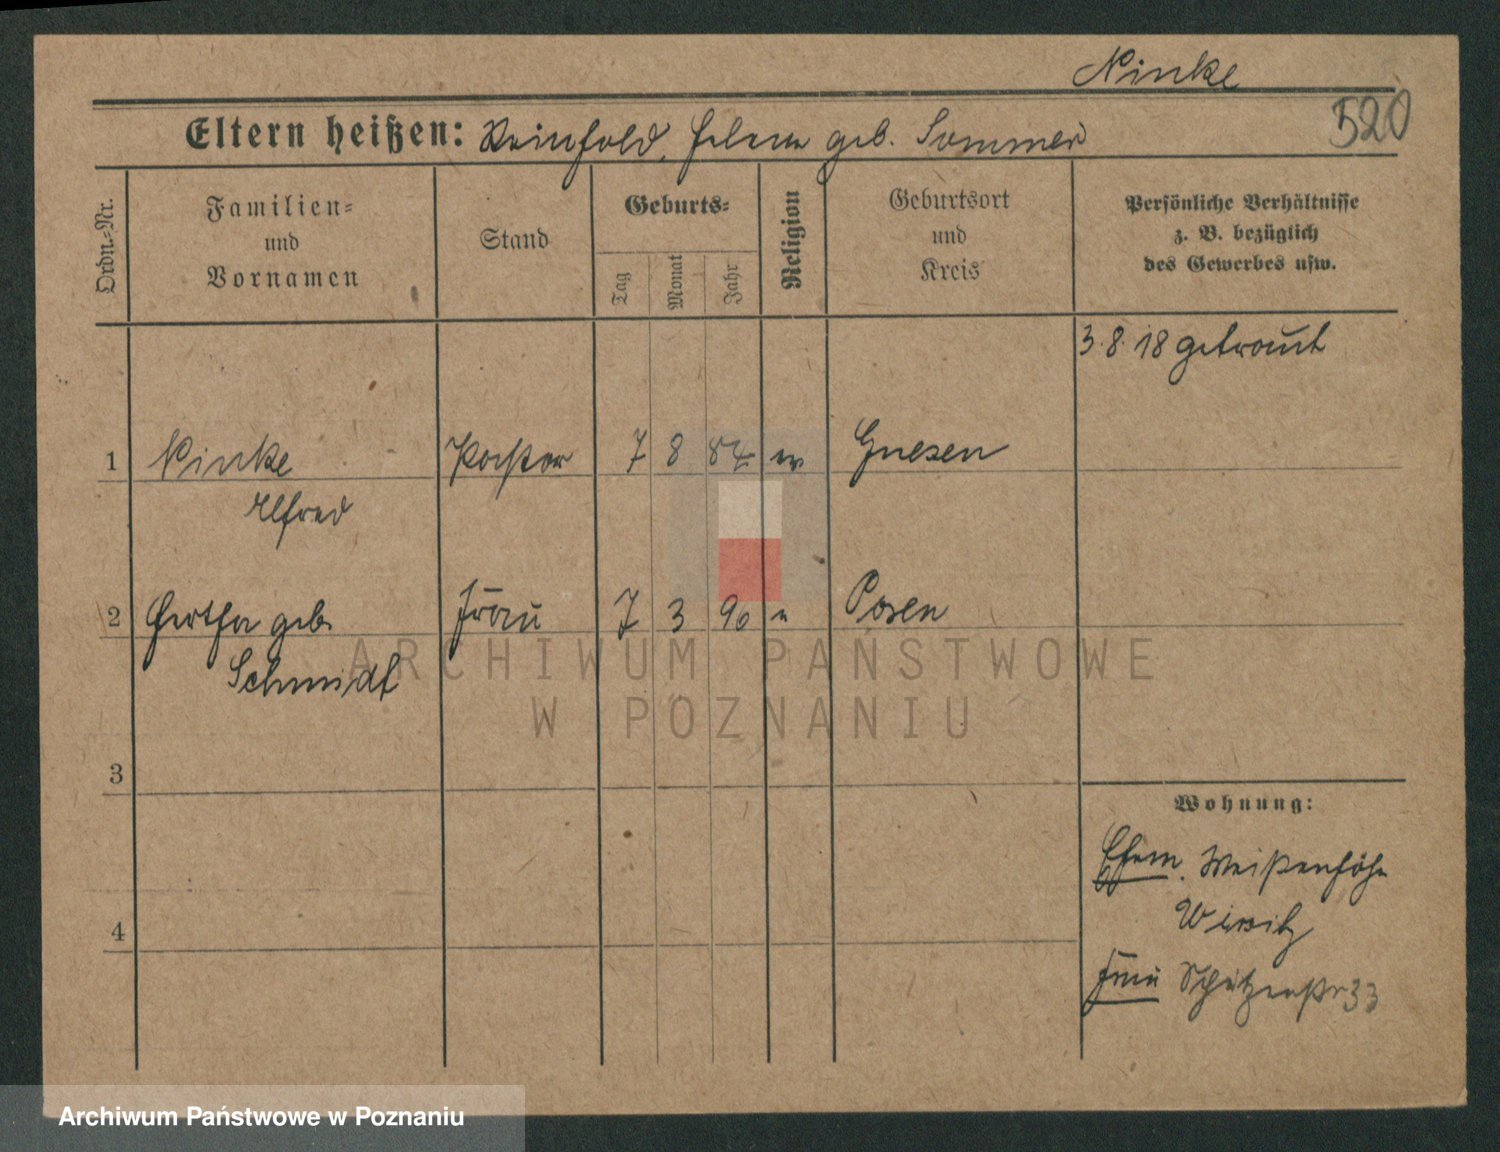 Ninke
520
Eltern heißen: Reinhold, Helene geb. Sommer
Ordn.-Nr.
Familien-
und
Vornamen
Stand
Geburts-
Tag
Monat
Jahr
Religion
Geburtsort
und
Kreis
Persönliche Verhältnisse
z. B. bezüglich
des Gewerbes usw.
3.8.18 getraut
1 Ninke Pastor 7 8 84 ev Gnesen
Alfred
2 Hertha geb. Frau 7 3 90 Posen
Schmidt
ARCHIWUM PAŃSTWOWE
W POZNANIU
3
Wohnung:
Ehem. Weißenhöhe
Wirsitz
4
Frau Schützenstr 33
Archiwum Państwowe w Poznaniu